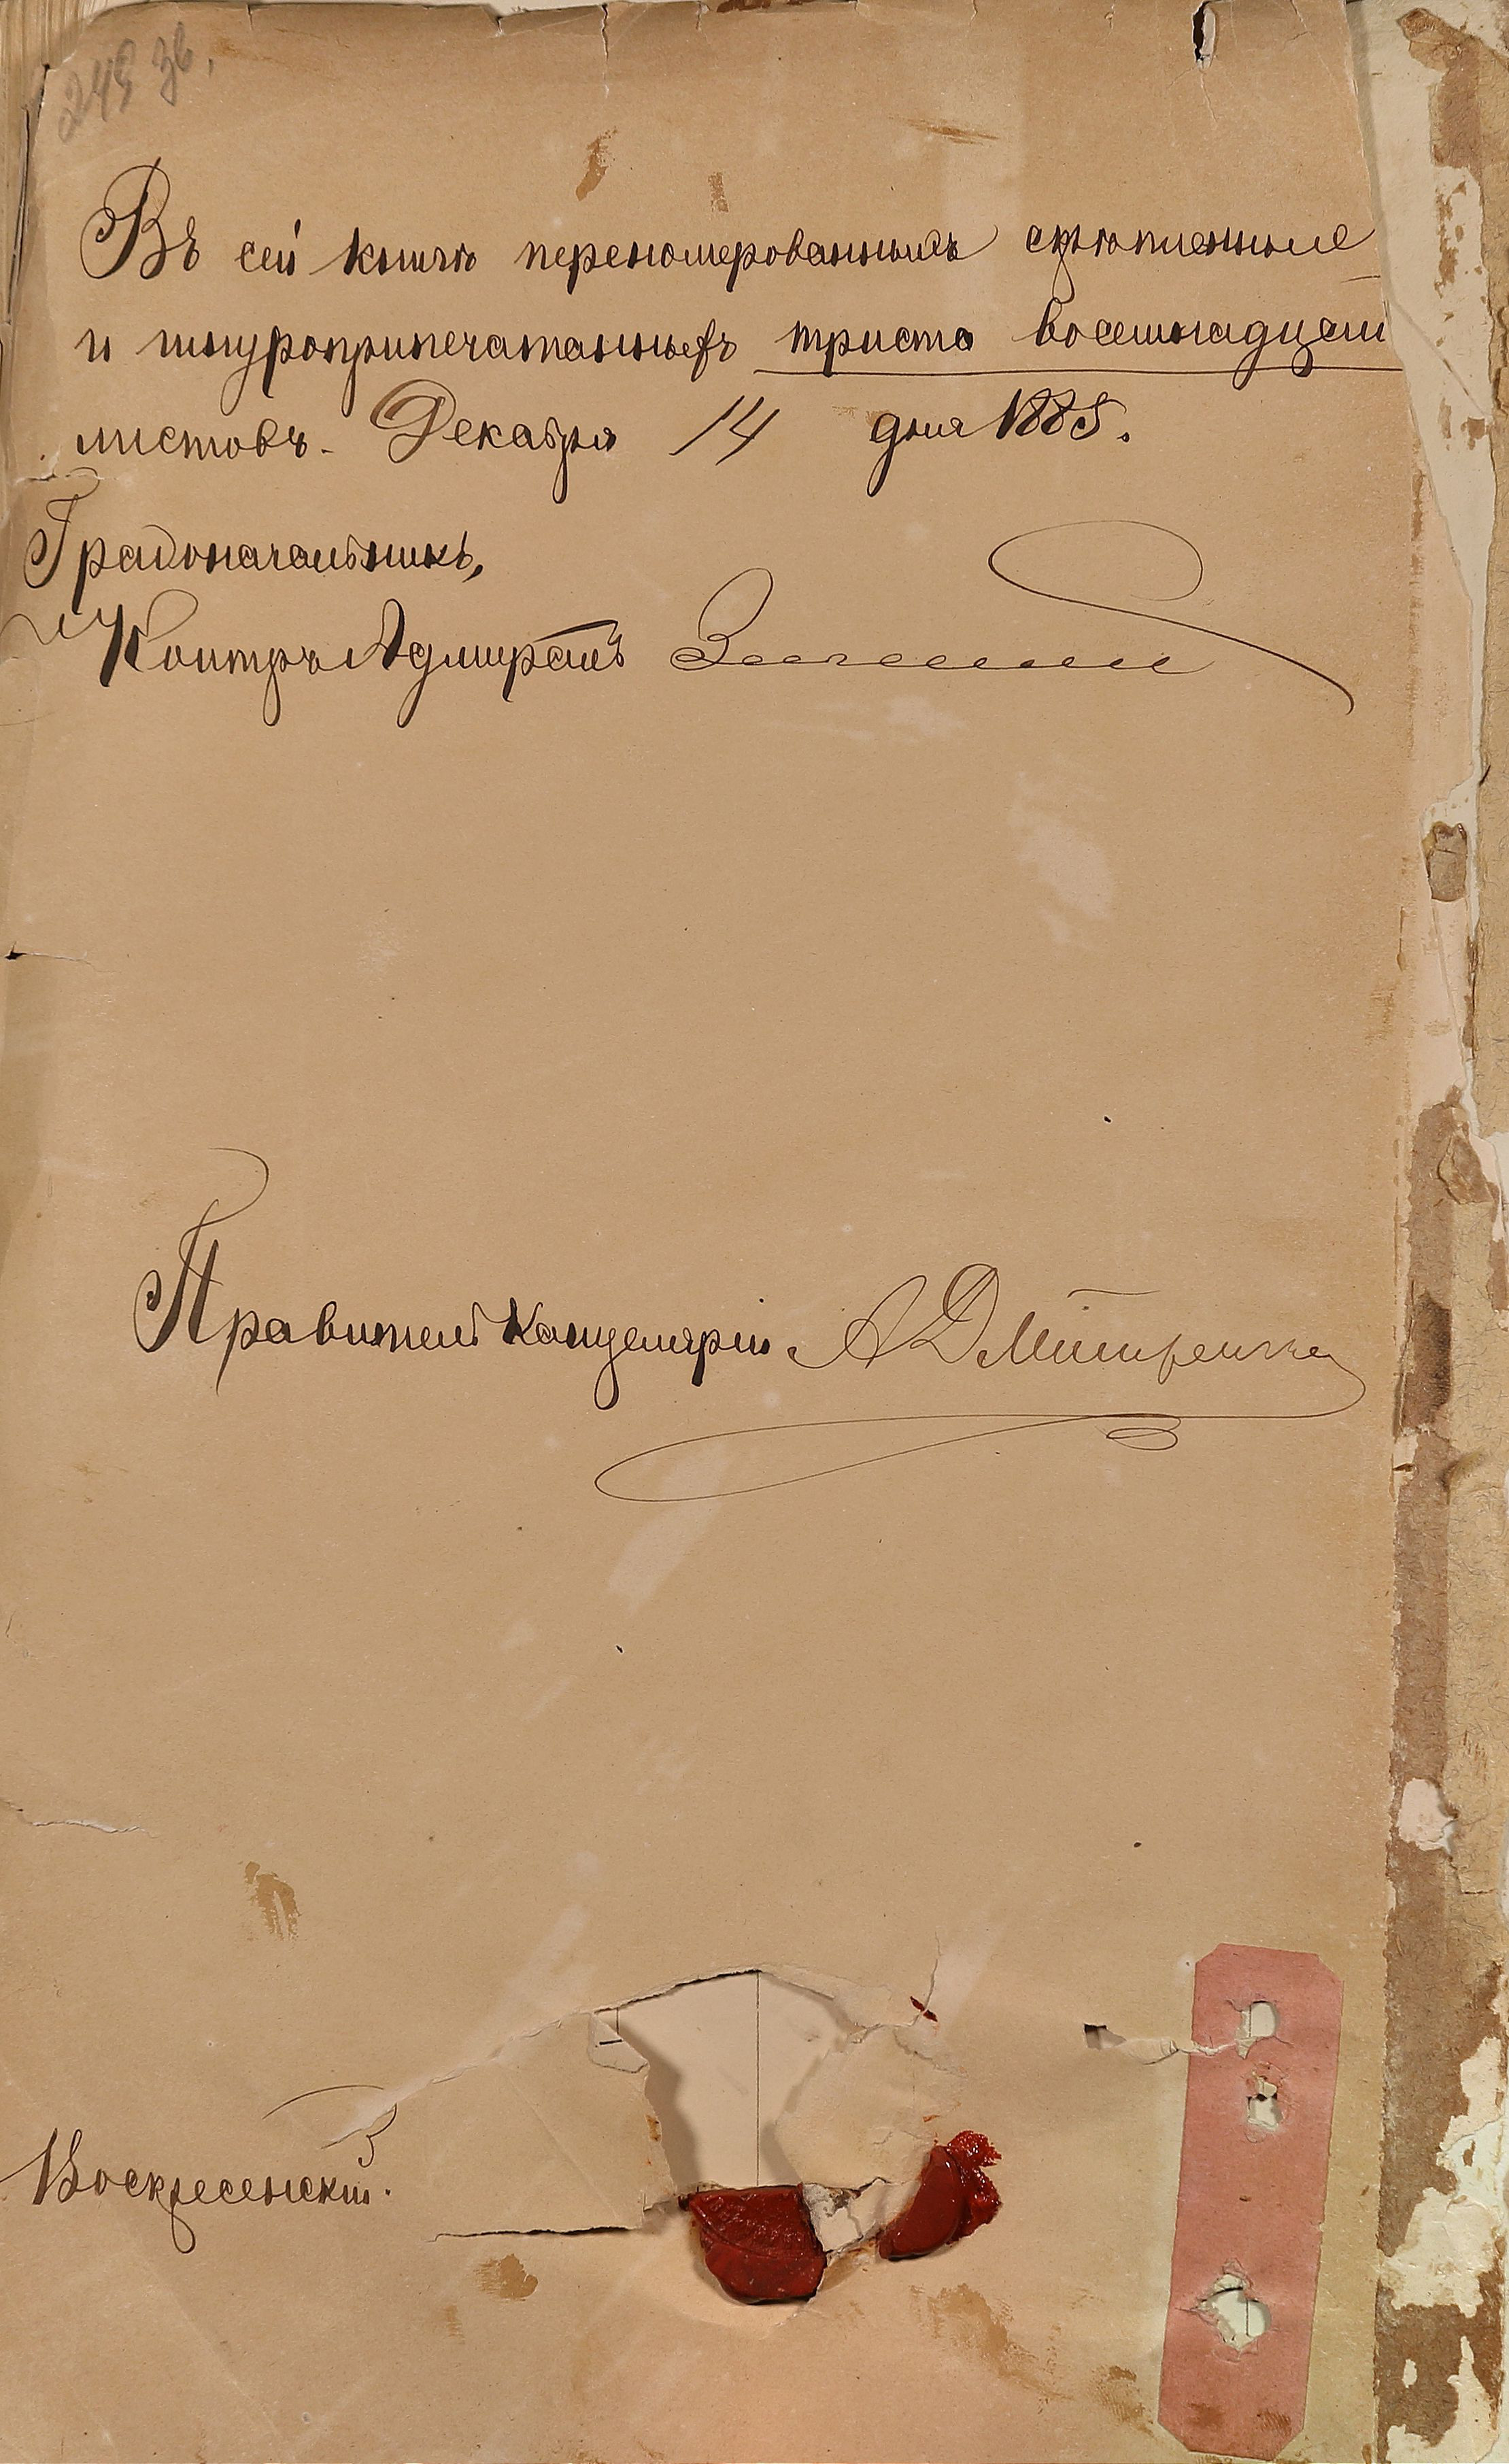 249 зв.
Въ сей книгѣ перенумерованныхъ скрѣпленные
и шнуроприпечатанныхъ триста восемнадцать
листовъ. Декабря 14 дня 1885.
Градоначальникъ,
Контръ Адмиралъ Зеленый
Правитель Канцеляріи А Дмитренко
Воскресенскій.